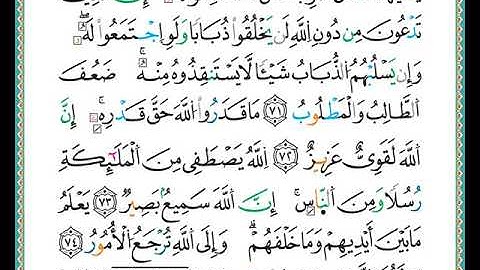 تَدْعُونَ مِن دُونِ ٱللَّهِ لَن يَخْلُقُوا۟ ذُبَابًا وَلَوِ ٱجْتَمَعُوا۟ لَهُۥ
وَإِن يَسْلُبْهُمُ ٱلذُّبَابُ شَيْـًٔا لَّا يَسْتَنقِذُوهُ مِنْهُ ضَعُفَ
ٱلطَّالِبُ وَٱلْمَطْلُوبُ ٧١ مَا قَدَرُوا۟ ٱللَّهَ حَقَّ قَدْرِهِۦٓ إِنَّ
ٱللَّهَ لَقَوِىٌّ عَزِيزٌ ٧٢ ٱللَّهُ يَصْطَفِى مِنَ ٱلْمَلَٰٓئِكَةِ
رُسُلًا وَمِنَ ٱلنَّاسِ إِنَّ ٱللَّهَ سَمِيعٌۢ بَصِيرٌ ٧٣ يَعْلَمُ
مَا بَيْنَ أَيْدِيهِمْ وَمَا خَلْفَهُمْ وَإِلَى ٱللَّهِ تُرْجَعُ ٱلْأُمُورُ ٧٤